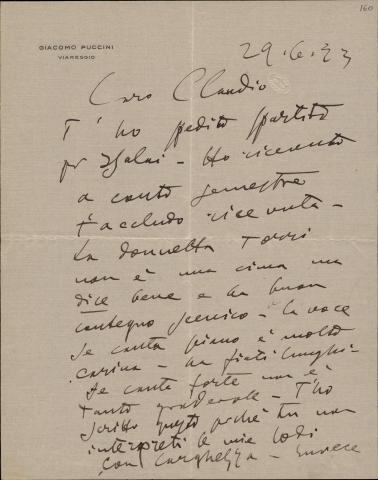 160
GIACOMO PUCCINI
VIAREGGIO
29.6.23
Caro Claudio
T'ho spedito spartito
pr - Ho ricevuto
a conto semestre
t'accludo ricevuta -
La donnetta Torri
non è una cima ma
dice bene e ha buon
contegno scenico - la voce
se canta piano è molto
carina - ha fiati lunghi -
Se canta forte non è
tanto gradevole - T'ho
scritto questo perché tu non
interpreti le mie lodi
con larghezza - Invece